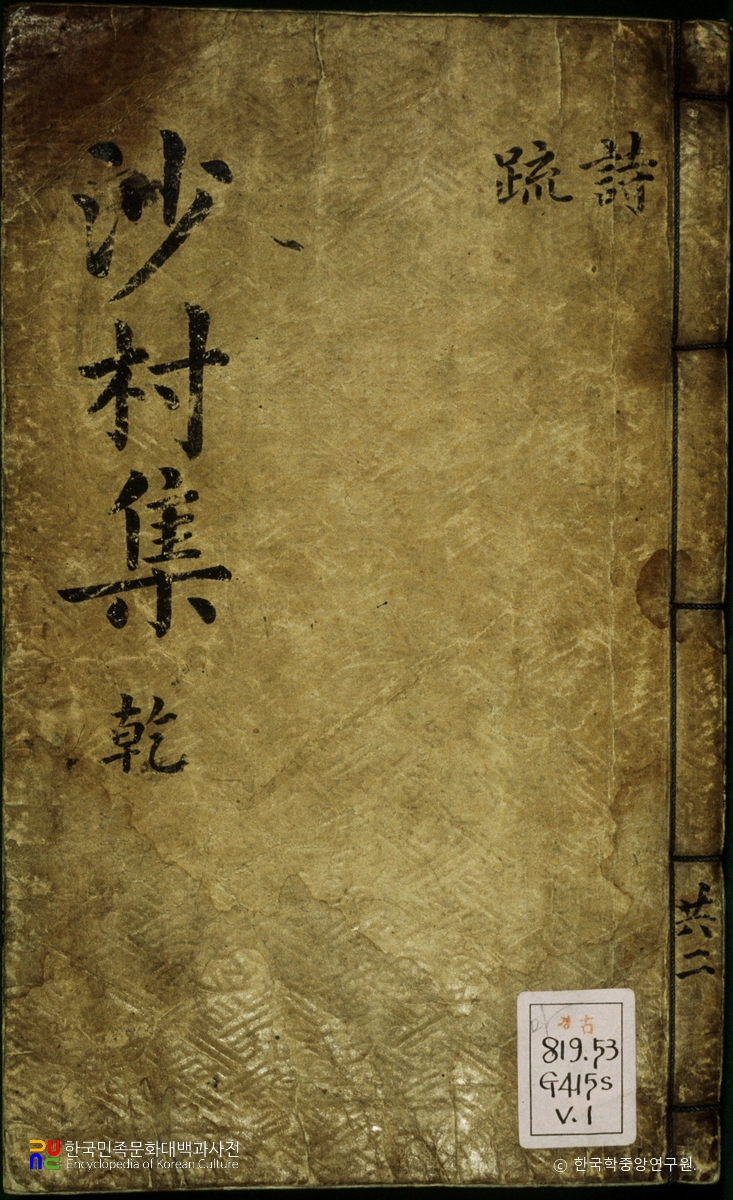 詩
疏
沙村集 乾
共二
古
819.53
G415s
V.1
한국민족문화대백과사전
Encyclopedia of Korean Culture
© 한국학중앙연구원